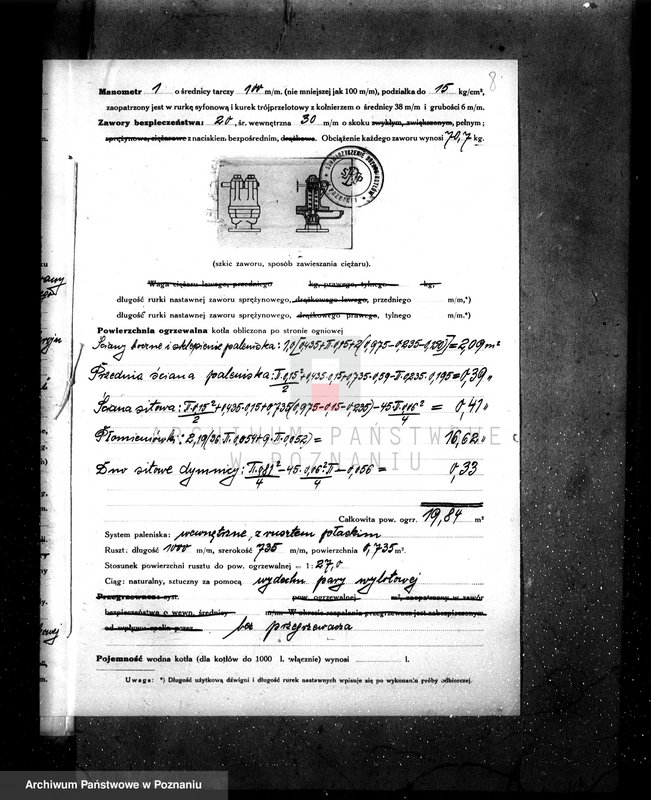 8
Manometr 1 o średnicy tarczy 100 m/m. (nie mniejszej jak 100 m/m), podziałka do 15 kg/cm²,
zaopatrzony jest w rurkę syfonową i kurek trójprzelotowy z kołnierzem o średnicy 38 m/m i grubości 6 m/m.
Zawory bezpieczeństwa: 20, śr. wewnętrzna 30 m/m o skoku zwykłym, zwiększonym, pełnym;
sprężynowe, ciężarowe z naciskiem bezpośrednim, drążkowe. Obciążenie każdego zaworu wynosi 70,7 kg.
(szkic zaworu, sposób zawieszania ciężaru).
Waga ciężaru lewego, przedniego kg, prawego, tylnego kg,
długość rurki nastawnej zaworu sprężynowego, drążkowego lewego, przedniego m/m,*)
długość rurki nastawnej zaworu sprężynowego, drążkowego prawego, tylnego m/m.*)
Powierzchnia ogrzewalna kotła obliczona po stronie ogniowej
Ściany boczne i sklepienie paleniska: = 2,09 m²
Przednia ściana paleniska: = 0,39 "
Ściana sitowa: = 0,41 "
Płomieniówki: 2,19(36·π·0,054+9·π·0,052) = 16,62 "
Dno sitowe dymnicy: = 0,33
ARCHIWUM PAŃSTWOWE
W POZNANIU
Całkowita pow. ogrz. 19,84 m²
System paleniska: wewnętrzne, z rusztem płaskim
Ruszt: długość 1000 m/m, szerokość 735 m/m, powierzchnia 0,735 m².
Stosunek powierzchni rusztu do pow. ogrzewalnej = 1: 27,0
Ciąg: naturalny, sztuczny za pomocą wydechu pary wylotowej
Przegrzewacz: syst. pow. ogrzewalnej m², zaopatrzony w zawór
bezpieczeństwa o wewn. średnicy m/m. W okresie rozpalania przegrzewacz jest zabezpieczony
od wpływu spalin przez bez przegrzewacza
Pojemność wodna kotła (dla kotłów do 1000 l. włącznie) wynosi l.
Uwaga: *) Długość użytkową dźwigni i długość rurek nastawnych wpisuje się po wykonaniu próby odbiorczej.
Archiwum Państwowe w Poznaniu